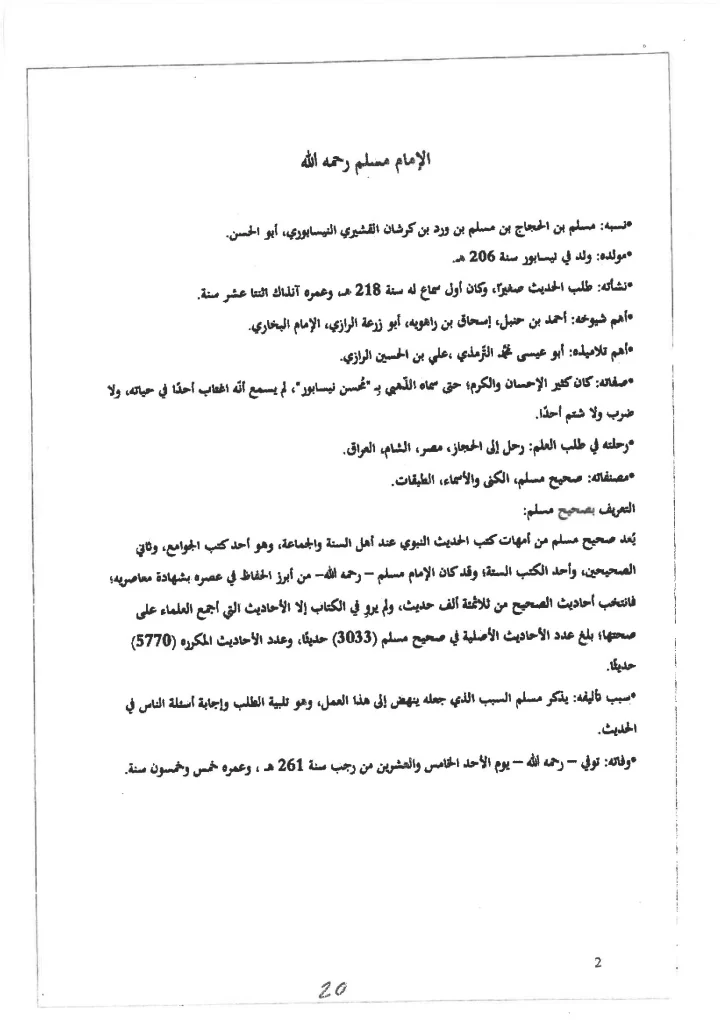 الإمام مسلم رحمه الله
•نسبه: مسلم بن الحجاج بن مسلم بن ورد بن كرشان القشيري النيسابوري، أبو الحسن.
•مولده: ولد في نيسابور سنة 206 هـ.
•نشأته: طلب الحديث صغيرًا، وكان أول سماع له سنة 218 هـ، وعمره آنذاك اثنتا عشر سنة.
•أهم شيوخه: أحمد بن حنبل، إسحاق بن راهويه، أبو زرعة الرازي، الإمام البخاري.
•أهم تلاميذه: أبو عيسى محمّد الترمذي ،علي بن الحسين الرازي.
•صفاته: كان كثير الإحسان والكرم؛ حتى سماه الذّهبي بـ "مُحسن نيسابور"، لم يسمع أنّه اغتاب أحدًا في حياته، ولا
ضرب ولا شتم أحدًا.
•رحلته في طلب العلم: رحل إلى الحجاز، مصر، الشام، العراق.
•مصنفاته: صحيح مسلم، الكنى والأسماء، الطبقات.
التعريف بصحيح مسلم:
يُعد صحيح مسلم من أمهات كتب الحديث النبوي عند أهل السنة والجماعة، وهو أحد كتب الجوامع، وثاني
الصحيحين، وأحد الكتب الستة؛ وقد كان الإمام مسلم – رحمه الله– من أبرز الحفاظ في عصره بشهادة معاصريه؛
فانتخب أحاديث الصحيح من ثلاثمئة ألف حديث، ولم يروِ في الكتاب إلا الأحاديث التي أجمع العلماء على
صحتها؛ بلغ عدد الأحاديث الأصلية في صحيح مسلم (3033) حديثًا، وعدد الأحاديث المكرره (5770)
حديثًا.
•سبب تأليفه: يذكر مسلم السبب الذي جعله ينهض إلى هذا العمل، وهو تلبية الطلب وإجابة أسئلة الناس في
الحديث.
•وفاته: توفي – رحمه الله – يوم الأحد الخامس والعشرين من رجب سنة 261 هـ ، وعمره خمس وخمسون سنة.
2
20